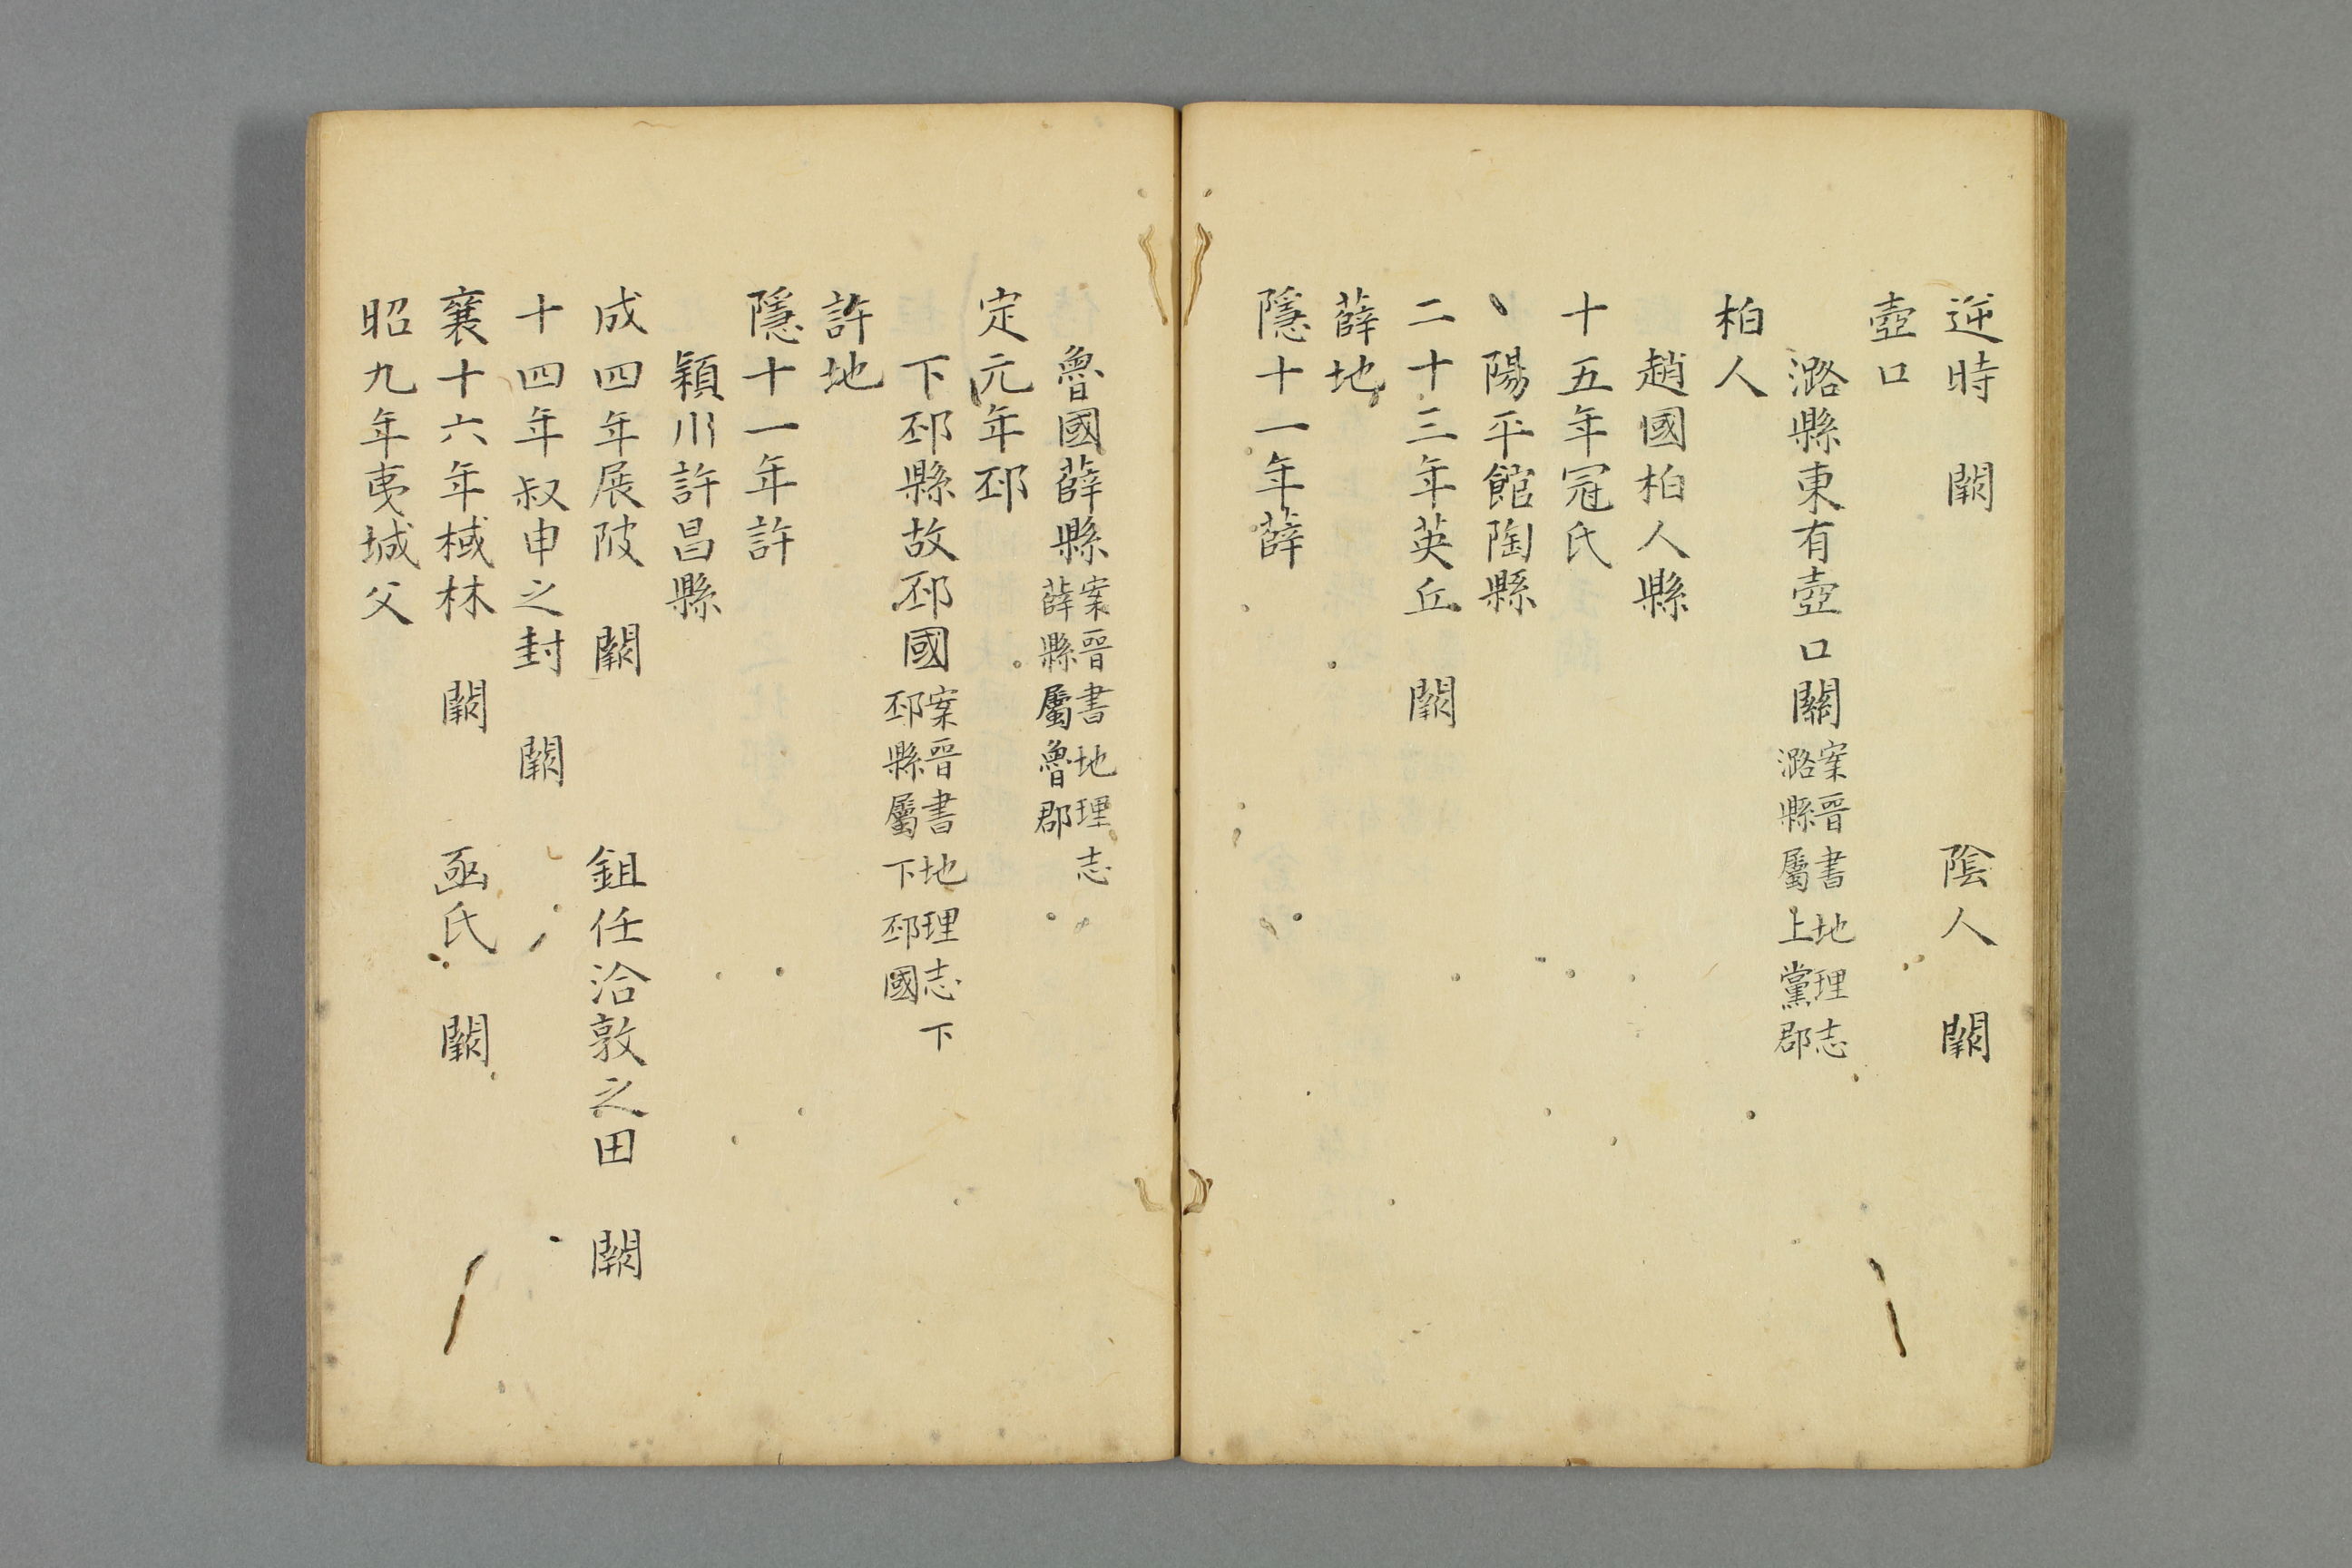 逆時　闕　　　　　陰人　闕
壺口
潞縣東有壺口關案晉書地理志潞縣屬上黨郡
柏人
趙國柏人縣
十五年冠氏
陽平館陶縣
二十三年英丘　闕
薛地
隱十一年薛
魯國薛縣案晉書地理志薛縣屬魯郡
定元年邳
下邳縣故邳國案晉書地理志下邳縣屬下邳國
許地
隱十一年許
潁川許昌縣
成四年展陂　闕　　　鉏任泠敦之田　闕
十四年叔申之封　闕
襄十六年棫林　闕　　函氏　闕
昭九年夷城父